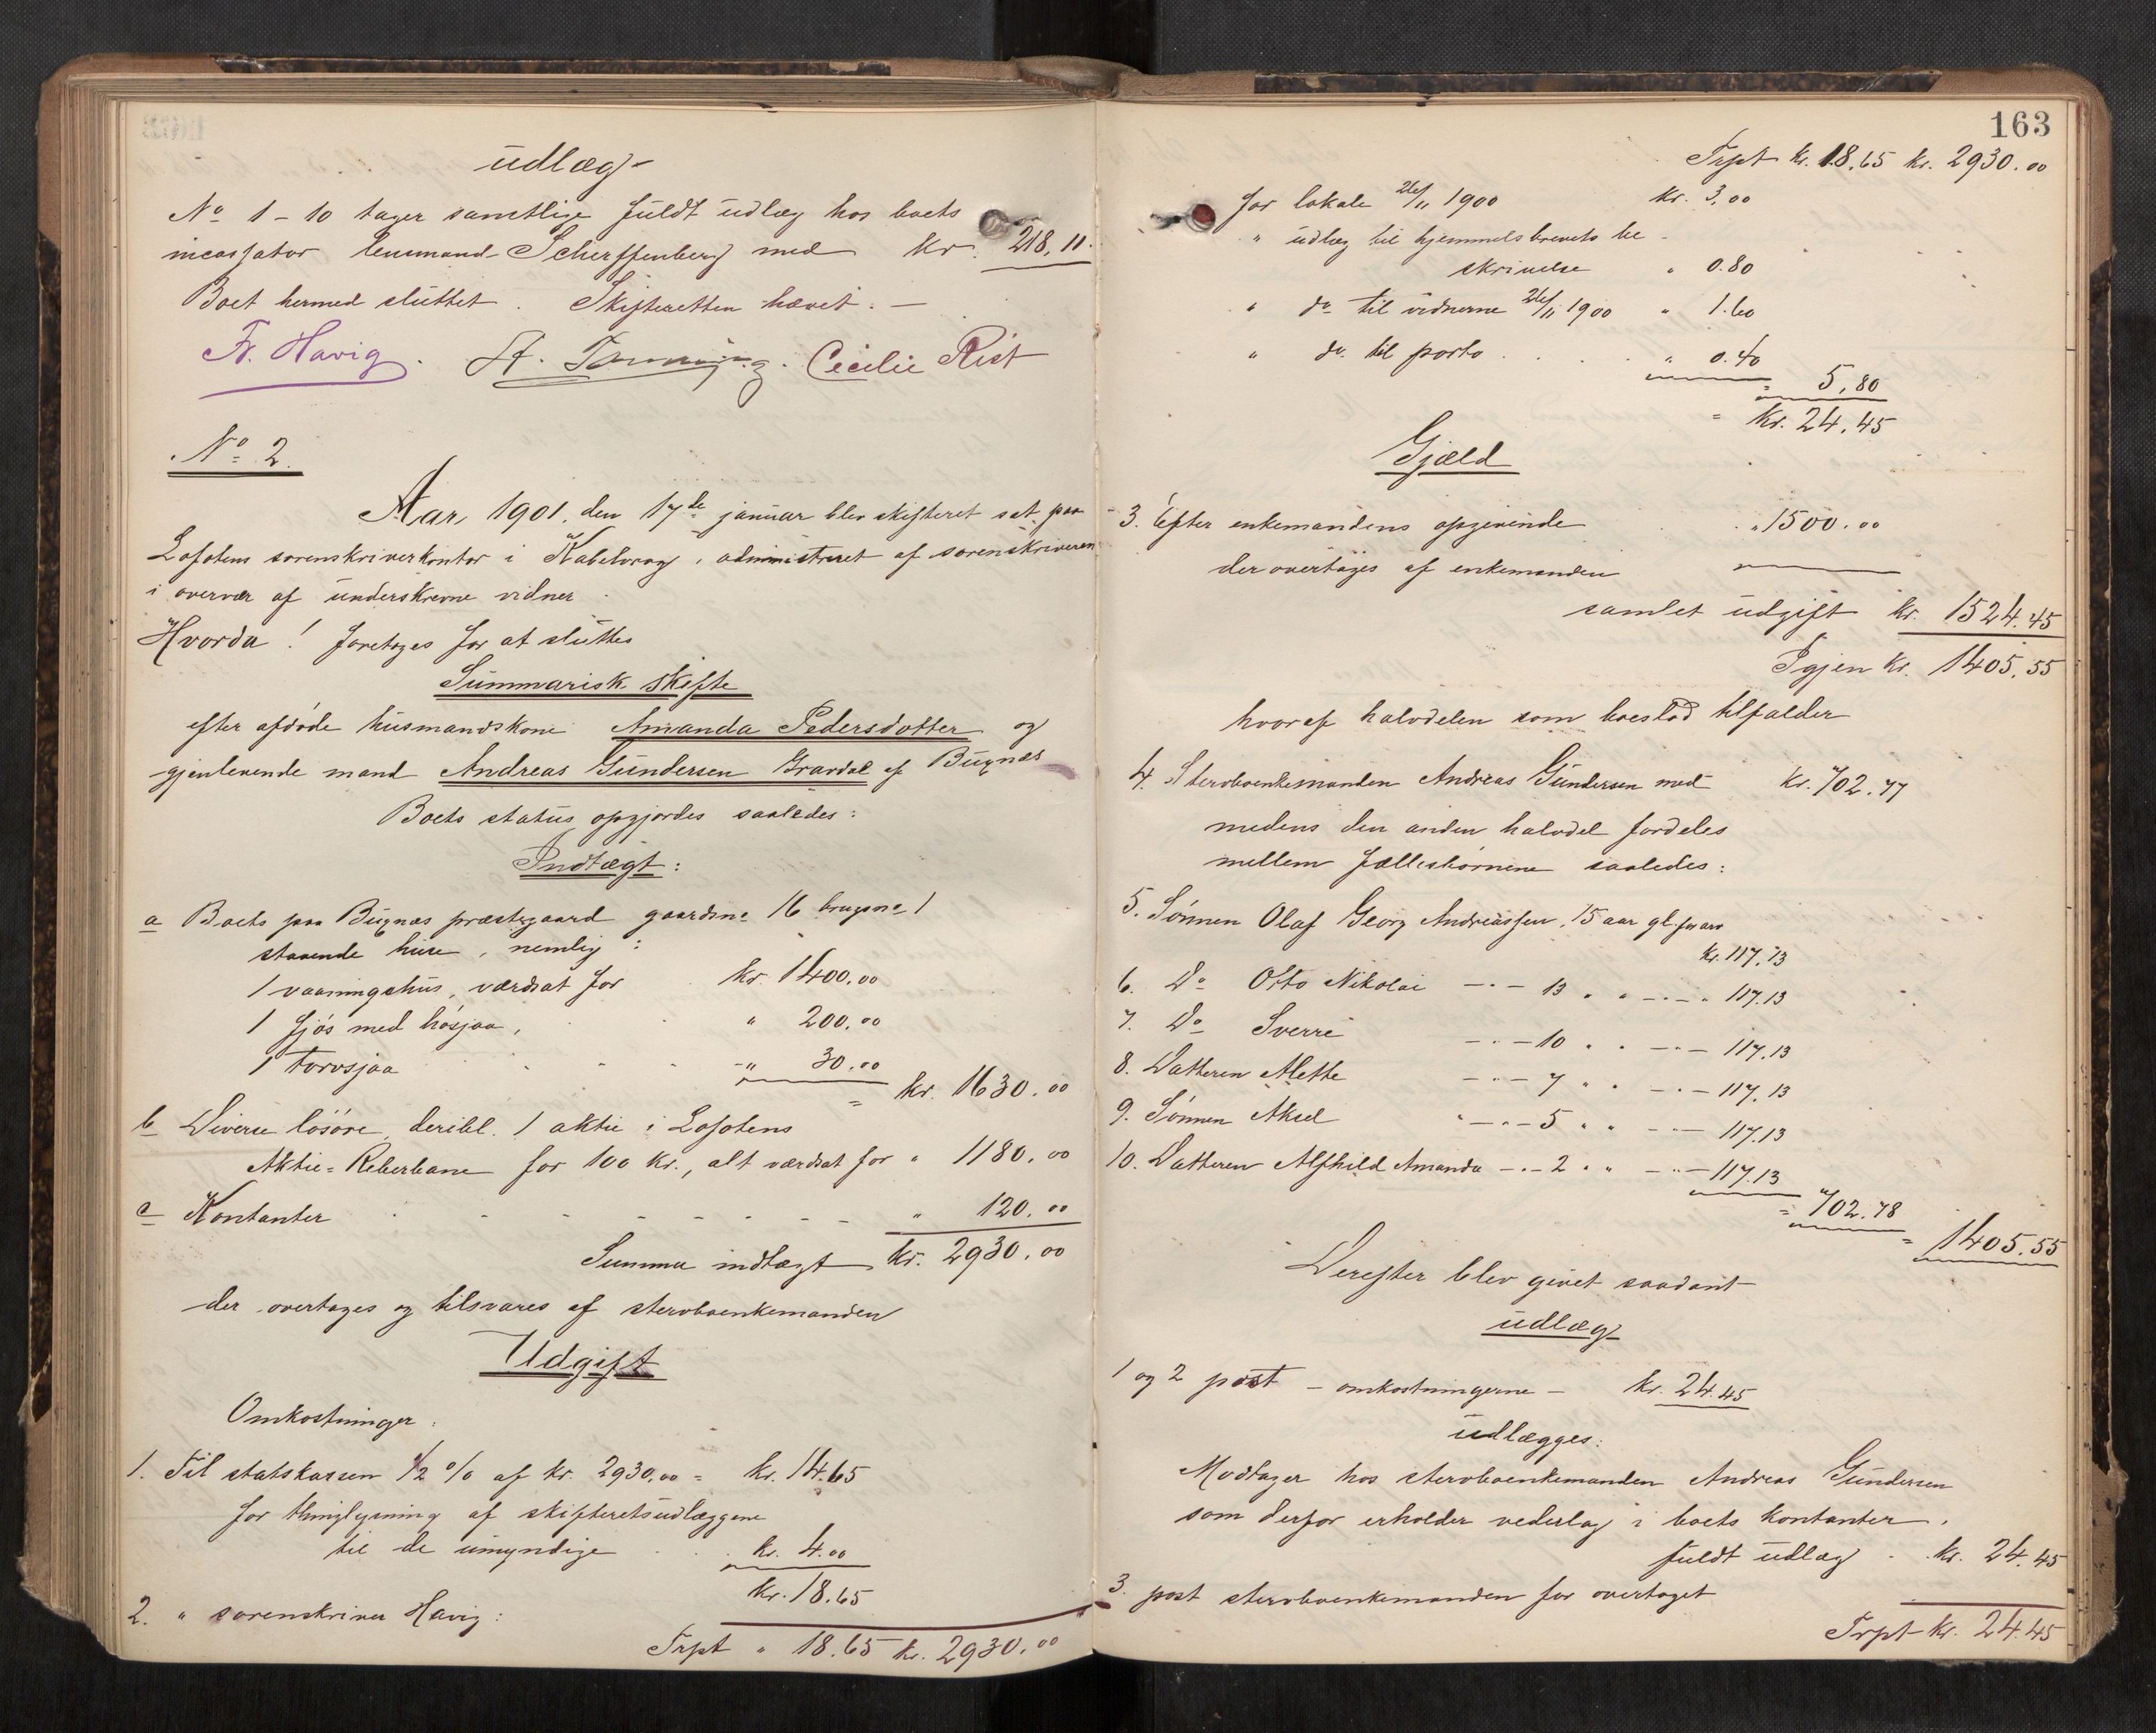 udlæg
No 1 - 10 tager samtlige fuldt udlæg hos boets
incassator lensmand Scherffenberg med kr. 218,11.
Boet hermed sluttet. Skifteretten hævet. —
Fr. Havig. Cecilie Rist
No 2.
Aar 1901, den 17de januar blev skifteret sat paa
Lofotens sorenskriverkontor i Kabelvaag, administreret af sorenskriveren
i overvær af underskrevne vidner.
Hvorda! foretoges for at sluttes
Summarisk skifte
efter afdøde husmandskone Amanda Pedersdotter og
gjenlevende mand Andreas Gundersen Gravdal af Buxnæs
Boets status opgjordes saaledes:
Indtægt:
a Boets paa Buxnæs præstegaard gaardsno 16 brugsno 1
staaende huse, nemlig:
1 vaaningshus, værdsat for kr. 1400.00
1 fjøs med høsjaa, " 200.00
1 torvsjaa " 30.00
= kr. 1630.00
b Diverse løsøre, deribl. 1 aktie i Lofotens
Aktie-Reberbane for 100 kr., alt værdsat for " 1180.00
c Kontanter " 120.00
Summa indtægt kr. 2930.00
der overtages og tilsvares af stervboenkemanden
Udgift
Omkostninger:
1. Til statskassen 1/2 % af kr. 2930.00 = kr. 14.65
for thinglysning af skifteretsudlæggene
til de umyndige kr. 4.00
kr. 18.65
2. " sorenskriver Havig:
Trpt " 18.65 kr. 2930.00
163
Trpt kr. 18.65 kr. 2930.00
for lokale 26/11 1900 kr. 3.00
" udlæg til hjemmelsbrevets be-
skrivelse " 0.80
" do til vidnerne 26/11 1900 " 1.60
" do til porto " 0.40
= 5,80
= kr. 24.45
Gjæld
3. Efter enkemandens opgivende " 1500.00
der overtages af enkemanden
samlet udgift kr. 1524.45
Igjen kr. 1405.55
hvoraf halvdelen som boeslod tilfalder
4. Stervboenkemanden Andreas Gundersen med kr. 702.77
medens den anden halvdel fordeles
mellem fællesbørnene saaledes:
5. Sønnen Olaf Georg Andreassen, 15 aar gl. for arv
kr. 117.13
6. Do Otto Nikolai — " — 13 " " — " — " 117.13
7. Do Sverre — " — 10 " " — " — 117.13
8. Datteren Alette — " — 7 " " — " — 117.13
9. Sønnen Aksel — " — 5 " " — " — 117.13
10. Datteren Alfhild Amanda — " — 2 " " — " — 117.13
= 702.78
= 1405.55
Derefter blev givet saadant
udlæg
1 og 2 post - omkostningerne - kr. 24.45
udlægges:
Modtager hos stervboenkemanden Andreas Gundersen
som derfor erholder vederlag i boets kontanter.
fuldt udlæg kr. 24.45
3. post stervboenkemanden for overtaget
Trpt kr. 24.45